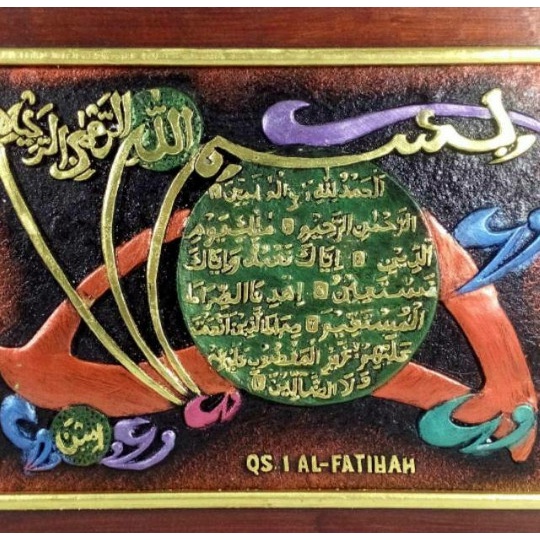 بسم الله الرحمن الرحيم
الحمد لله رب العلمين ۝
الرحمن الرحيم ۝ ملك يوم
الدين ۝ إياك نعبد وإياك
نستعين ۝ اهدنا الصراط
المستقيم ۝ صراط الذين أنعمت
عليهم غير المغضوب عليهم
ولا الضالين ۝
QS. 1 AL-FATIHAH